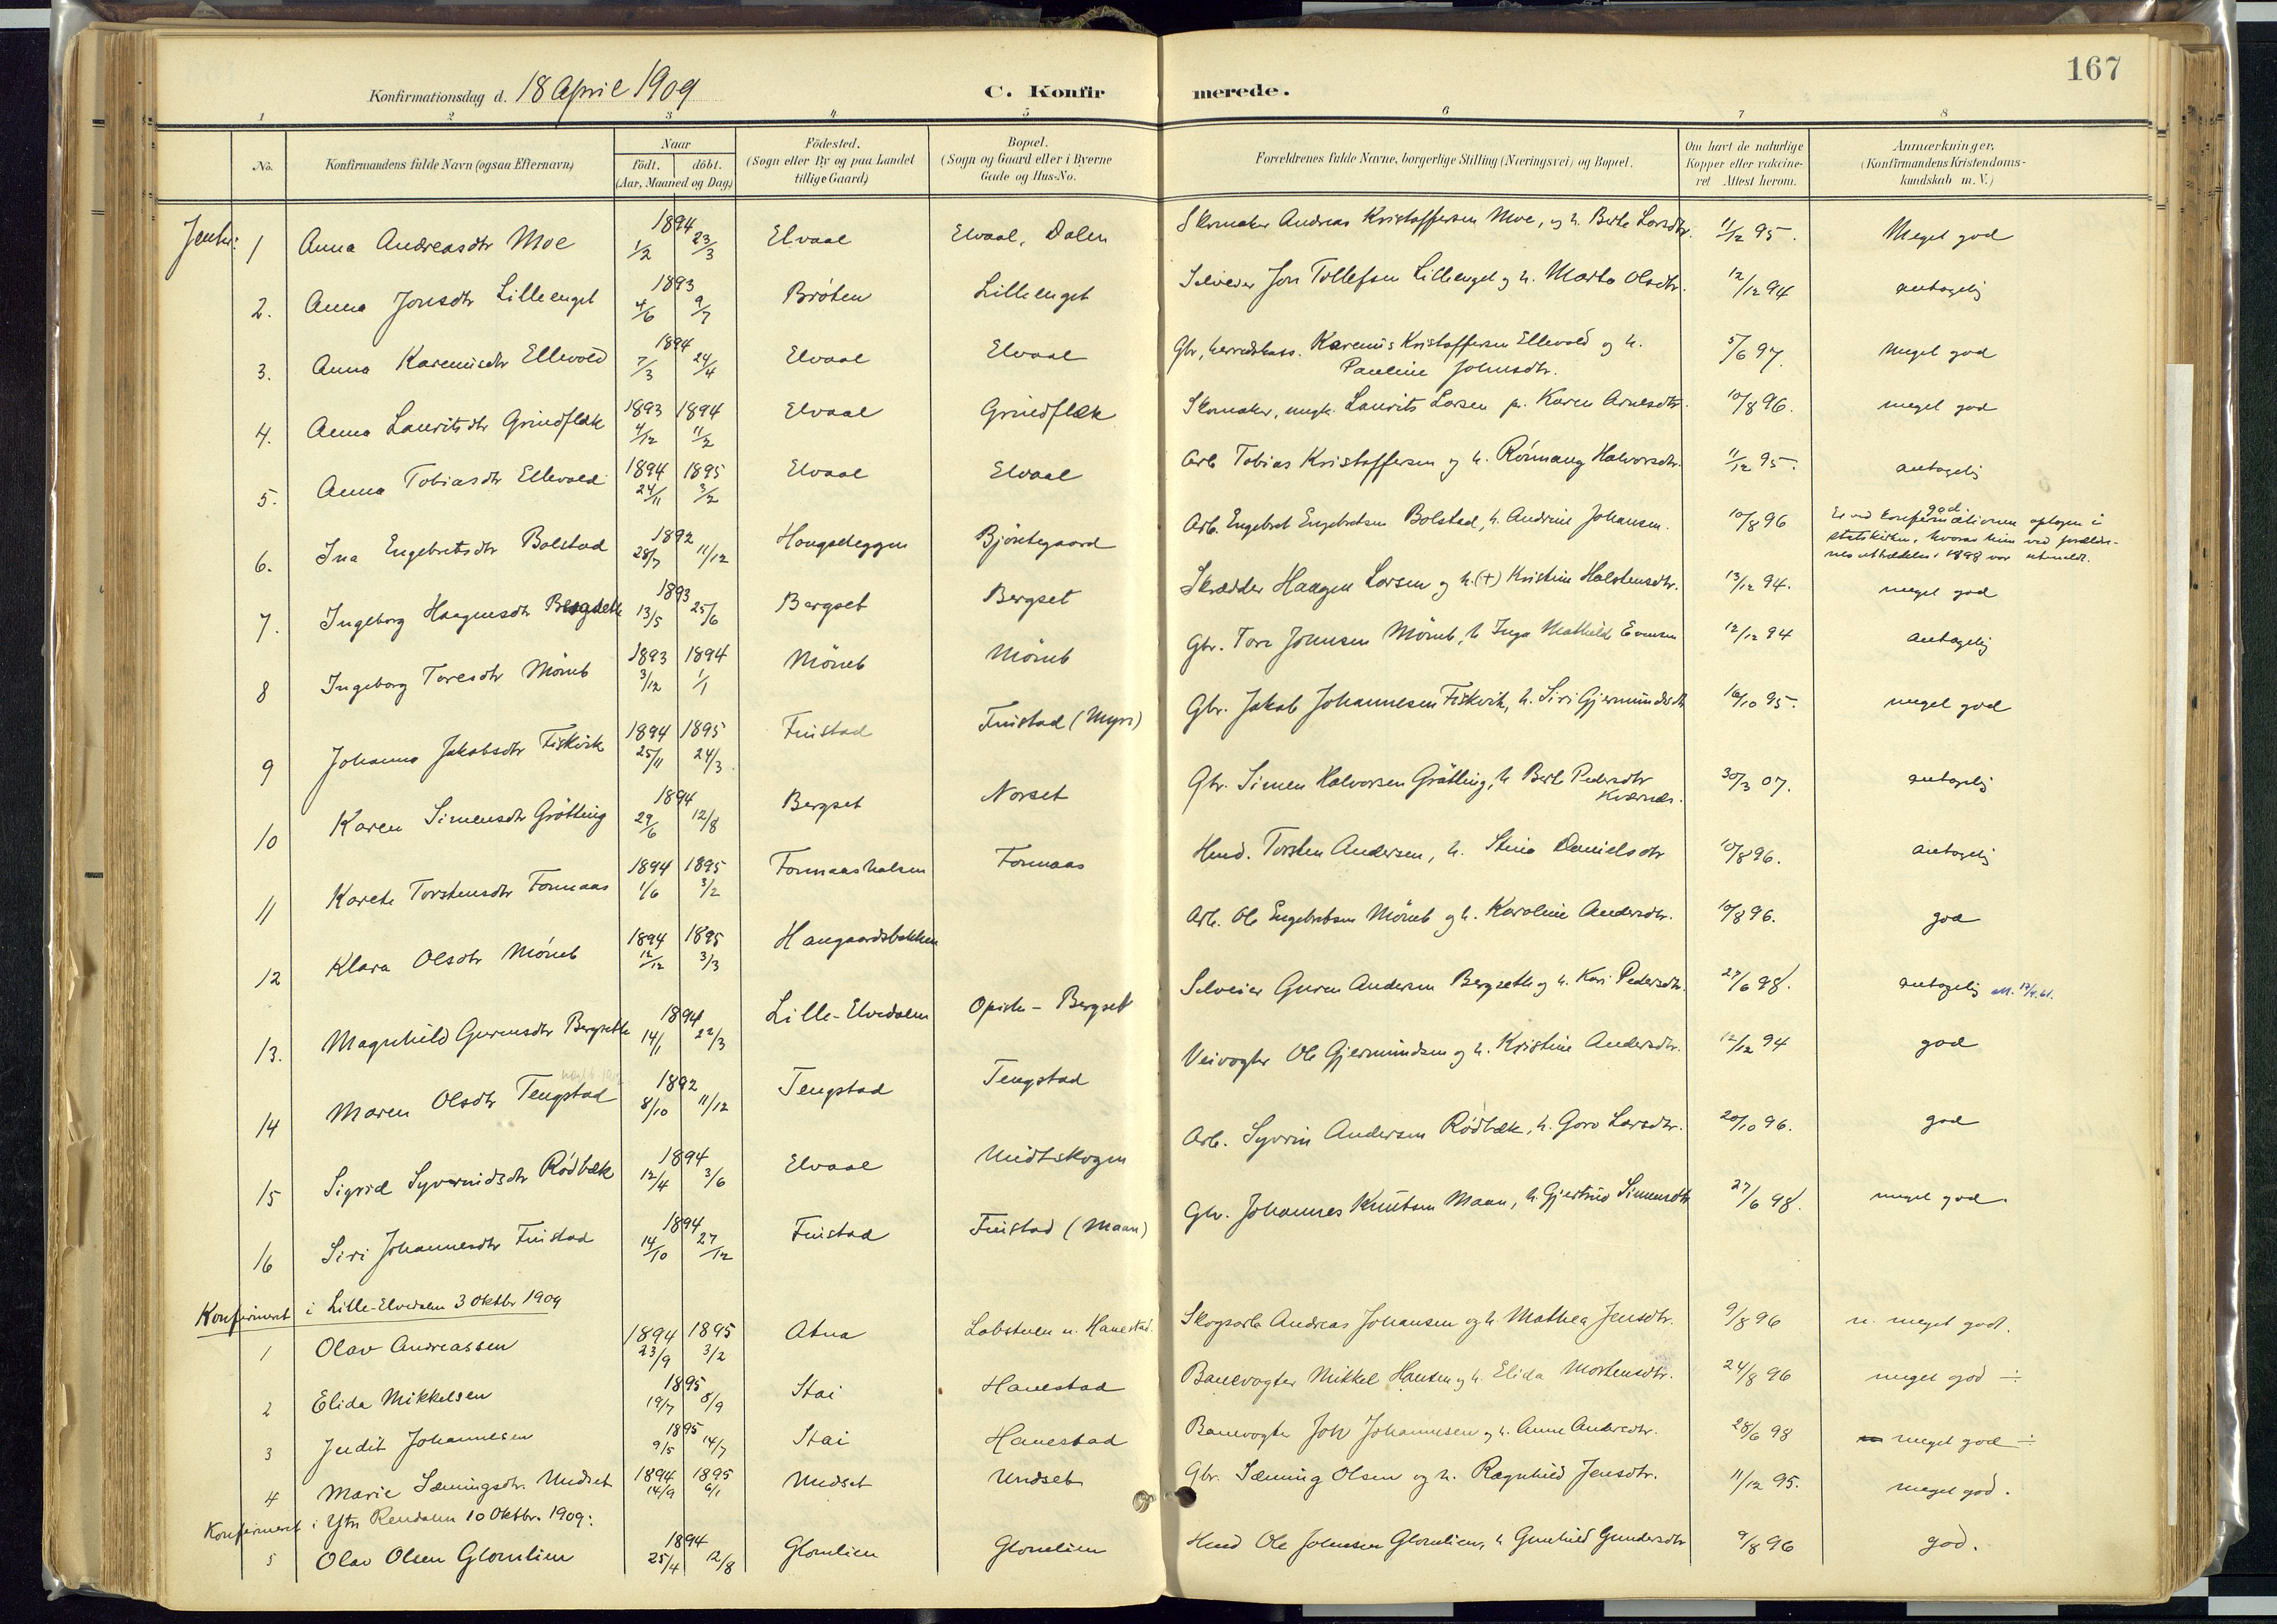 167
Konfirmationsdag d. 18 April 1909 C. Konfirmerede.
1 2 3 4 5 6 7 8
No. Konfirmandens fulde Navn (ogsaa Efternavn) Naar födt. döbt. (Aar, Maaned og Dag) Födested. (Sogn eller By og paa Landet tillige Gaard) Bopæl. (Sogn og Gaard eller i Byerne Gade og Hus-No. Forældrenes fulde Navne, borgerlige Stilling (Næringsvei) og Bopæl. Om havt de naturlige Kopper eller vakcineret Attest herom. Anmærkninger, (Konfirmandens Kristendomskundskab m. V.)
Jenter:
1 Anna Andreasdtr Moe 1894 1/2 23/3 Elvaal Elvaal, Dalen Skomaker Andreas Kristoffersen Moe, og h. Berte Larsdtr. 11/12 95. Meget god
2. Anna Jonsdtr Lilleenget 1893 4/6 9/7 Bröten Lilleenget Selveier Jon Tollefsen Lilleenget og h. Marte Olsdtr. 12/12 94 antagelig
3. Anna Karenusdtr Ellevold 1894 7/3 24/4 Elvaal Elvaal Gbr, herredskass. Karenus Kristoffersen Ellevold og h. Pauline Johnsdtr. 5/6 97. Meget god
4. Anna Lauritsdtr Grindflæk 1893 4/12 1894 11/2 Elvaal Grindflæk Skomaker, ungk. Laurits Larsen p. Karen Arnesdtr. 10/8 96. meget god
5. Anna Tobiasdtr Ellevold 1894 24/11 1895 3/2 Elvaal Elvaal Arb Tobias Kristoffersen og h. Rönnaug Halvorsdtr. 11/12 95. antagelig
6. Ina Engebretsdtr Bolstad 1892 28/7 11/12 Haugseteggen Björnegaard Arb. Engebret Engebretsen Bolstad, h. Andrine Johansen. 10/8 96 god. Er ved konfirmationen optagen i statskirken, hvoraf hun ved forældrenes uttrædelse i 1898 var utmeldt.
7. Ingeborg Haagensdtr Bergseth 1893 13/5 25/6 Bergset Bergset Skrædder Haagen Larsen og h. (+) Kristine Halstensdtr. 13/12 94. meget god
8 Ingeborg Toresdtr Möneb 1893 3/12 1894 1/1 Möneb Möneb Gbr. Tore Johnsen Möneb, h Inga Mathilde Evensen 12/12 94 antagelig
9 Johanna Jakobsdtr Fiskvik 1894 25/11 1895 24/3 Finstad Finstad (Myri) Gbr. Jakob Johannesen Fiskvik, h. Siri Gjermundsdtr 16/10 95. meget god
10 Karen Simensdtr Grötting 1894 29/6 12/8 Bergset Norset Gbr. Simen Halvorsen Grötting, h Berte Pedersdtr Kværnes. 30/3 07. antagelig
11 Karete Torstensdtr Formaas 1894 1/6 1895 3/2 Formaashalsen Formaas Hmd. Torsten Andersen, h. Stina Danielsdtr 10/8 96. antagelig
12 Klara Olsdtr Möneb 1894 12/12 1895 3/3 Haugaardsbakken Arb. Ole Engebretsen Möneb og h. Karoline Andersdtr. 10/8 96. god
13. Magnhild Gurensdtr Bergseth 1894 14/1 22/3 Lille-Elvedalen Opistu-Bergset Selveier Guren Andersen Bergseth og h. Kari Pedersdtr. 27/6 98. antagelig att. 12/9.61.
14 Maren Olsdtr Tengstad 1892 8/10 11/12 Tengstad Tengstad Veivogter Ole Gjermundsen og h. Kristine Andersdtr. 12/12 94 god
15 Sigrid Syverindsdtr Rödbæk 1894 12/4 3/6 Elvaal Midtskogen Arb. Syvrin Andersen Rödbæk, h. Goro Larsdtr. 20/10 96. god
16 Siri Johannesdtr Finstad 1894 14/10 27/12 Finstad Finstad (Maan) Gbr. Johannes Knutsen Maan, h. Gjertrud Simensdtr 27/6 98. meget god
Konfirmert i Lille-Elvdalen 3 Oktbr 1909
1 Olav Andreassen 1894 23/9 1895 3/2 Atna Labstuen n. Hanestad. Skogsarb Andreas Johansen og h. Mathea Jensdtr. 9/8 96 n. meget godt.
2 Elida Mikkelsen 1895 19/7 8/9 Stai Hanestad Banevogter Mikkel Hansen og h. Elida Mortensdtr. 24/8 96 meget god ÷
3 Judit Johannesen 1895 9/5 14/7 Stai Hanestad Banevogter Joh Johannesen og h. Anne Andersdtr. 28/6 98 meget god ÷
4 Marie Sæmingsdtr. Undset 1894 14/9 1895 6/1 Undset Undset Gbr. Sæming Olsen og h. Ragnhild Jensdtr. 11/12 95. meget god.
Konfirmeret i Ytre Rendalen 10 Oktbr. 1909:
5 Olav Olsen Glomlien 1894 25/4 12/8 Glomlien Glomlien Hmd Ole Johnsen Glomlien, h Gunhild Gundersdtr 9/8 96 god.